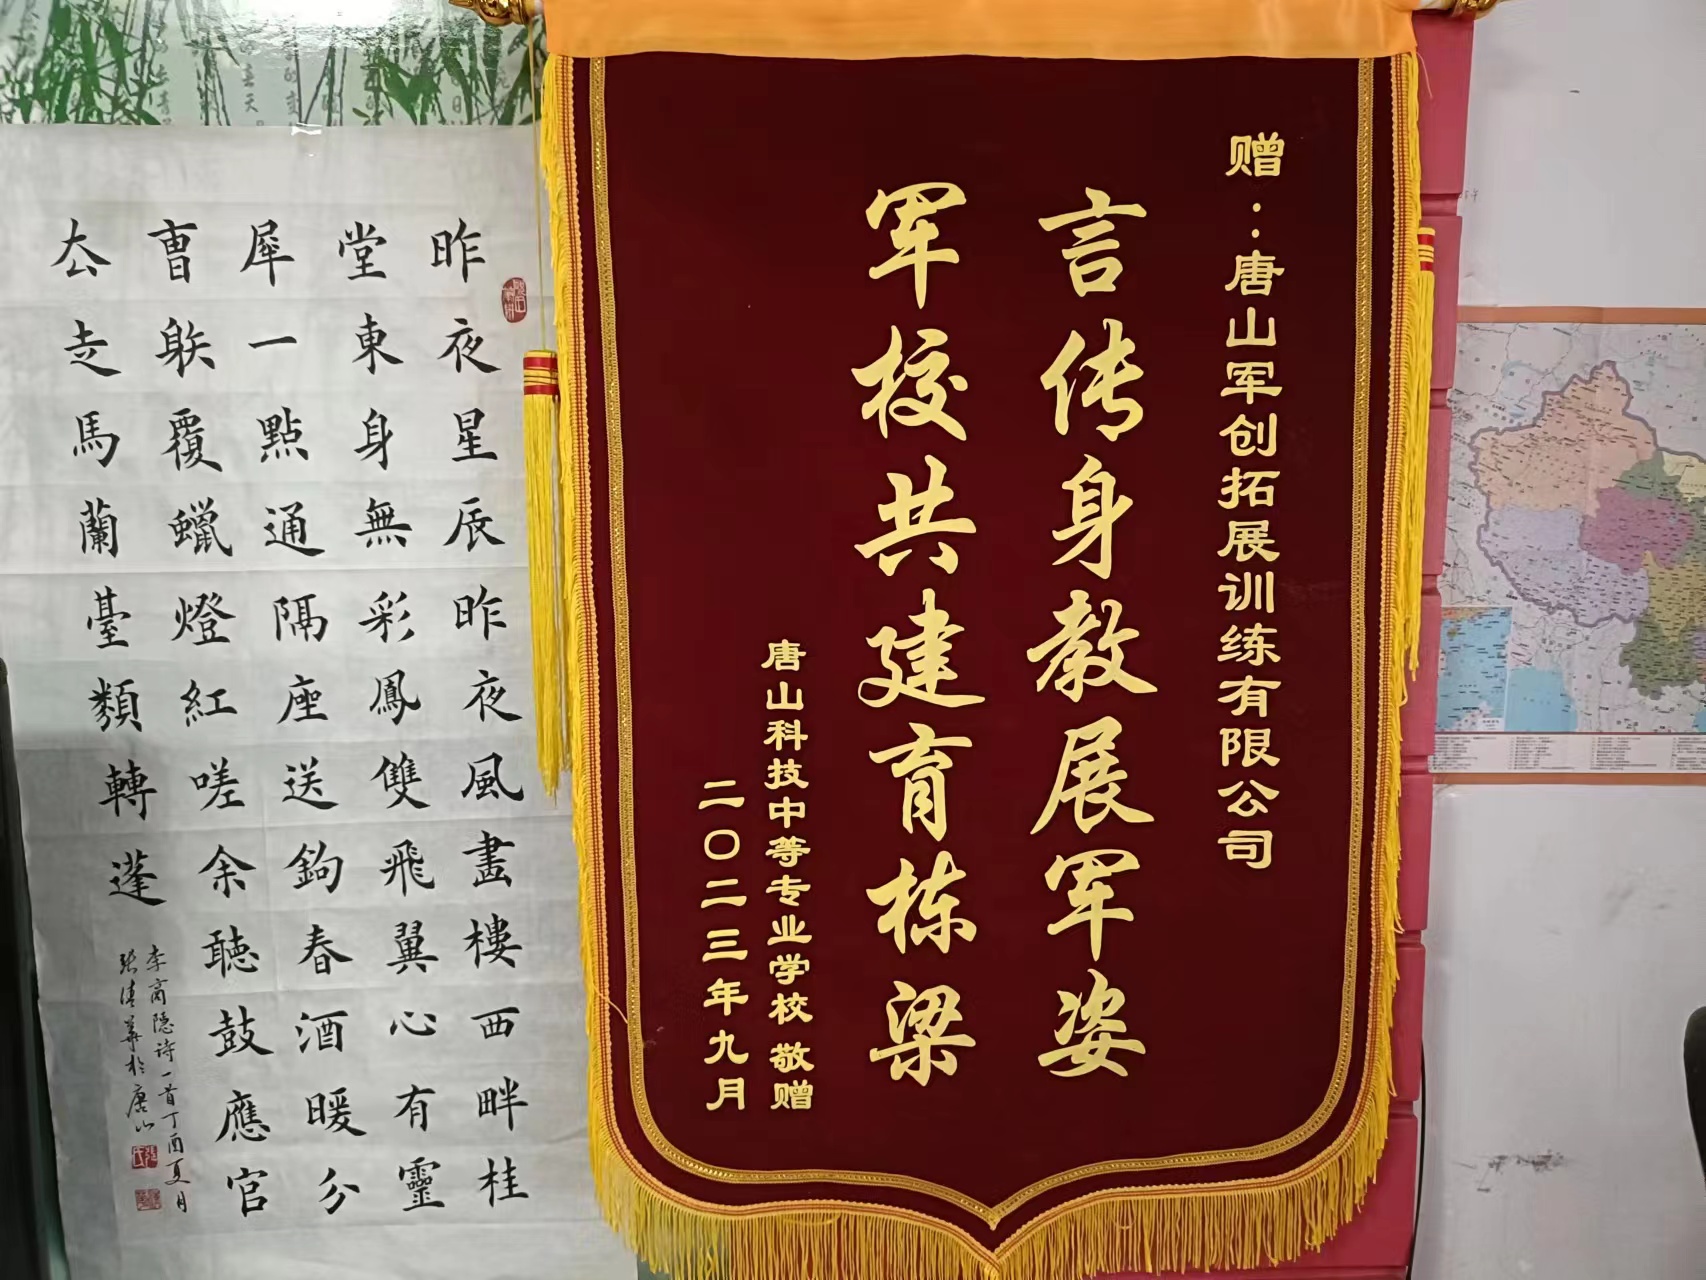 赠：唐山军创拓展训练有限公司
言传身教展军姿
军校共建育栋梁
唐山科技中等专业学校 敬赠
二〇二三年九月
昨夜星辰昨夜風畫樓西畔桂
堂東身無彩鳳雙飛翼心有靈
犀一點通隔座送鉤春酒暖分
曹躲覆蠟燈紅嗟余聽鼓應官
厺走馬蘭臺類轉蓬
李商隐诗一首丁酉夏月
於唐山